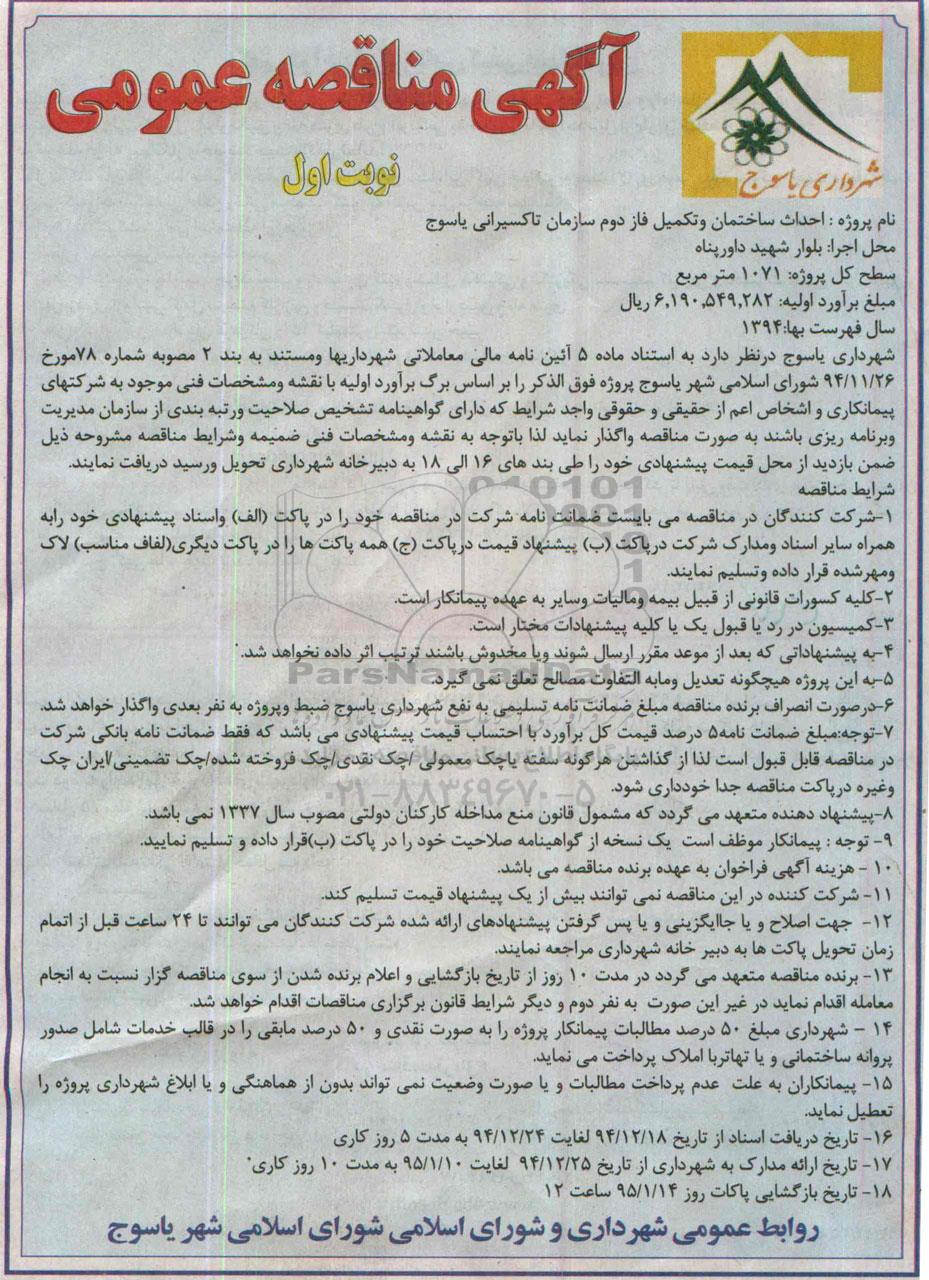 آگهی مناقصه عمومی
نوبت اول
شهرداری یاسوج
نام پروژه : احداث ساختمان وتکمیل فاز دوم سازمان تاکسیرانی یاسوج
محل اجرا: بلوار شهید داورپناه
سطح کل پروژه: ۱۰۷۱ متر مربع
مبلغ برآورد اولیه: ۶,۱۹۰,۵۴۹,۲۸۲ ریال
سال فهرست بها:۱۳۹۴
شهرداری یاسوج درنظر دارد به استناد ماده ۵ آئین نامه مالی معاملاتی شهرداریها ومستند به بند ۲ مصوبه شماره ۷۸مورخ
۹۴/۱۱/۲۶ شورای اسلامی شهر یاسوج پروژه فوق الذکر را بر اساس برگ برآورد اولیه با نقشه ومشخصات فنی موجود به شرکتهای
پیمانکاری و اشخاص اعم از حقیقی و حقوقی واجد شرایط که دارای گواهینامه تشخیص صلاحیت ورتبه بندی از سازمان مدیریت
وبرنامه ریزی باشند به صورت مناقصه واگذار نماید لذا باتوجه به نقشه ومشخصات فنی ضمیمه وشرایط مناقصه مشروحه ذیل
ضمن بازدید از محل قیمت پیشنهادی خود را طی بند های ۱۶ الی ۱۸ به دبیرخانه شهرداری تحویل ورسید دریافت نمایند.
شرایط مناقصه
۱-شرکت کنندگان در مناقصه می بایست ضمانت نامه شرکت در مناقصه خود را در پاکت (الف) واسناد پیشنهادی خود رابه
همراه سایر اسناد ومدارک شرکت درپاکت (ب) پیشنهاد قیمت درپاکت (ج) همه پاکت ها را در پاکت دیگری(لفاف مناسب) لاک
ومهرشده قرار داده وتسلیم نمایند.
۲-کلیه کسورات قانونی از قبیل بیمه ومالیات وسایر به عهده پیمانکار است.
۳-کمیسیون در رد یا قبول یک یا کلیه پیشنهادات مختار است.
۴-به پیشنهاداتی که بعد از موعد مقرر ارسال شوند ویا مخدوش باشند ترتیب اثر داده نخواهد شد.
ParsNamadData
۵-به این پروژه هیچگونه تعدیل ومابه التفاوت مصالح تعلق نمی گیرد.
۶-درصورت انصراف برنده مناقصه مبلغ ضمانت نامه تسلیمی به نفع شهرداری یاسوج ضبط وپروژه به نفر بعدی واگذار خواهد شد.
۷-توجه:مبلغ ضمانت نامه۵ درصد قیمت کل برآورد با احتساب قیمت پیشنهادی می باشد که فقط ضمانت نامه بانکی شرکت
در مناقصه قابل قبول است لذا از گذاشتن هرگونه سفته یاچک معمولی /چک نقدی/چک فروخته شده/چک تضمینی/ایران چک
وغیره درپاکت مناقصه جدا خودداری شود.
۰۲۱-۸۸۳۴۹۶۷۰-۵
۸-پیشنهاد دهنده متعهد می گردد که مشمول قانون منع مداخله کارکنان دولتی مصوب سال ۱۳۳۷ نمی باشد.
۹- توجه : پیمانکار موظف است یک نسخه از گواهینامه صلاحیت خود را در پاکت (ب)قرار داده و تسلیم نمایید.
۱۰ - هزینه آگهی فراخوان به عهده برنده مناقصه می باشد.
۱۱- شرکت کننده در این مناقصه نمی توانند بیش از یک پیشنهاد قیمت تسلیم کند.
۱۲- جهت اصلاح و یا جاایگزینی و یا پس گرفتن پیشنهادهای ارائه شده شرکت کنندگان می توانند تا ۲۴ ساعت قبل از اتمام
زمان تحویل پاکت ها به دبیر خانه شهرداری مراجعه نمایند.
۱۳- برنده مناقصه متعهد می گردد در مدت ۱۰ روز از تاریخ بازگشایی و اعلام برنده شدن از سوی مناقصه گزار نسبت به انجام
معامله اقدام نماید در غیر این صورت به نفر دوم و دیگر شرایط قانون برگزاری مناقصات اقدام خواهد شد.
۱۴ - شهرداری مبلغ ۵۰ درصد مطالبات پیمانکار پروژه را به صورت نقدی و ۵۰ درصد مابقی را در قالب خدمات شامل صدور
پروانه ساختمانی و یا تهاتربا املاک پرداخت می نماید.
۱۵- پیمانکاران به علت عدم پرداخت مطالبات و یا صورت وضعیت نمی تواند بدون از هماهنگی و یا ابلاغ شهرداری پروژه را
تعطیل نماید.
۱۶- تاریخ دریافت اسناد از تاریخ ۹۴/۱۲/۱۸ لغایت ۹۴/۱۲/۲۴ به مدت ۵ روز کاری
۱۷- تاریخ ارائه مدارک به شهرداری از تاریخ ۹۴/۱۲/۲۵ لغایت ۹۵/۱/۱۰ به مدت ۱۰ روز کاری
۱۸- تاریخ بازگشایی پاکات روز ۹۵/۱/۱۴ ساعت ۱۲
روابط عمومی شهرداری و شورای اسلامی شورای اسلامی شهر یاسوج